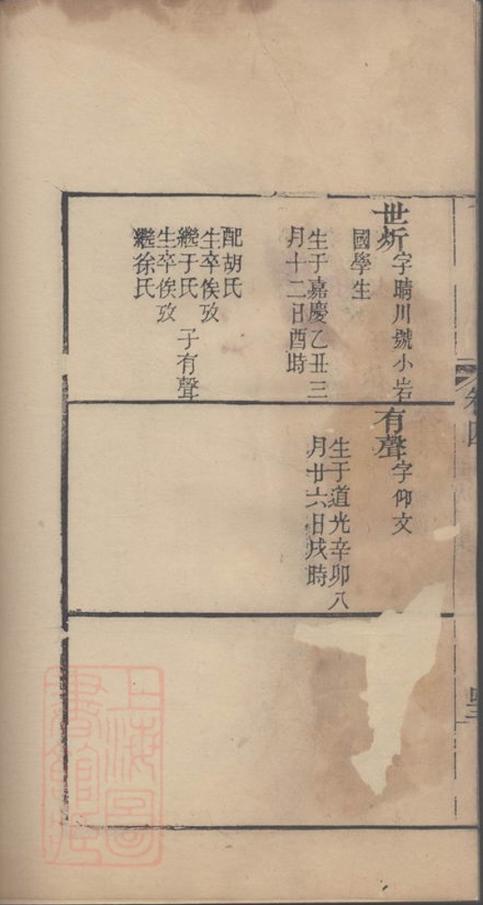 世炘 字晴川號小岩
國學生
生于嘉慶乙丑三
月十二日酉時
配胡氏
生卒俟攷
繼于氏 子有聲
生卒俟攷
繼徐氏
有聲 字仰文
生于道光辛卯八
月廿六日戌時
卷四
上海圖
書館藏